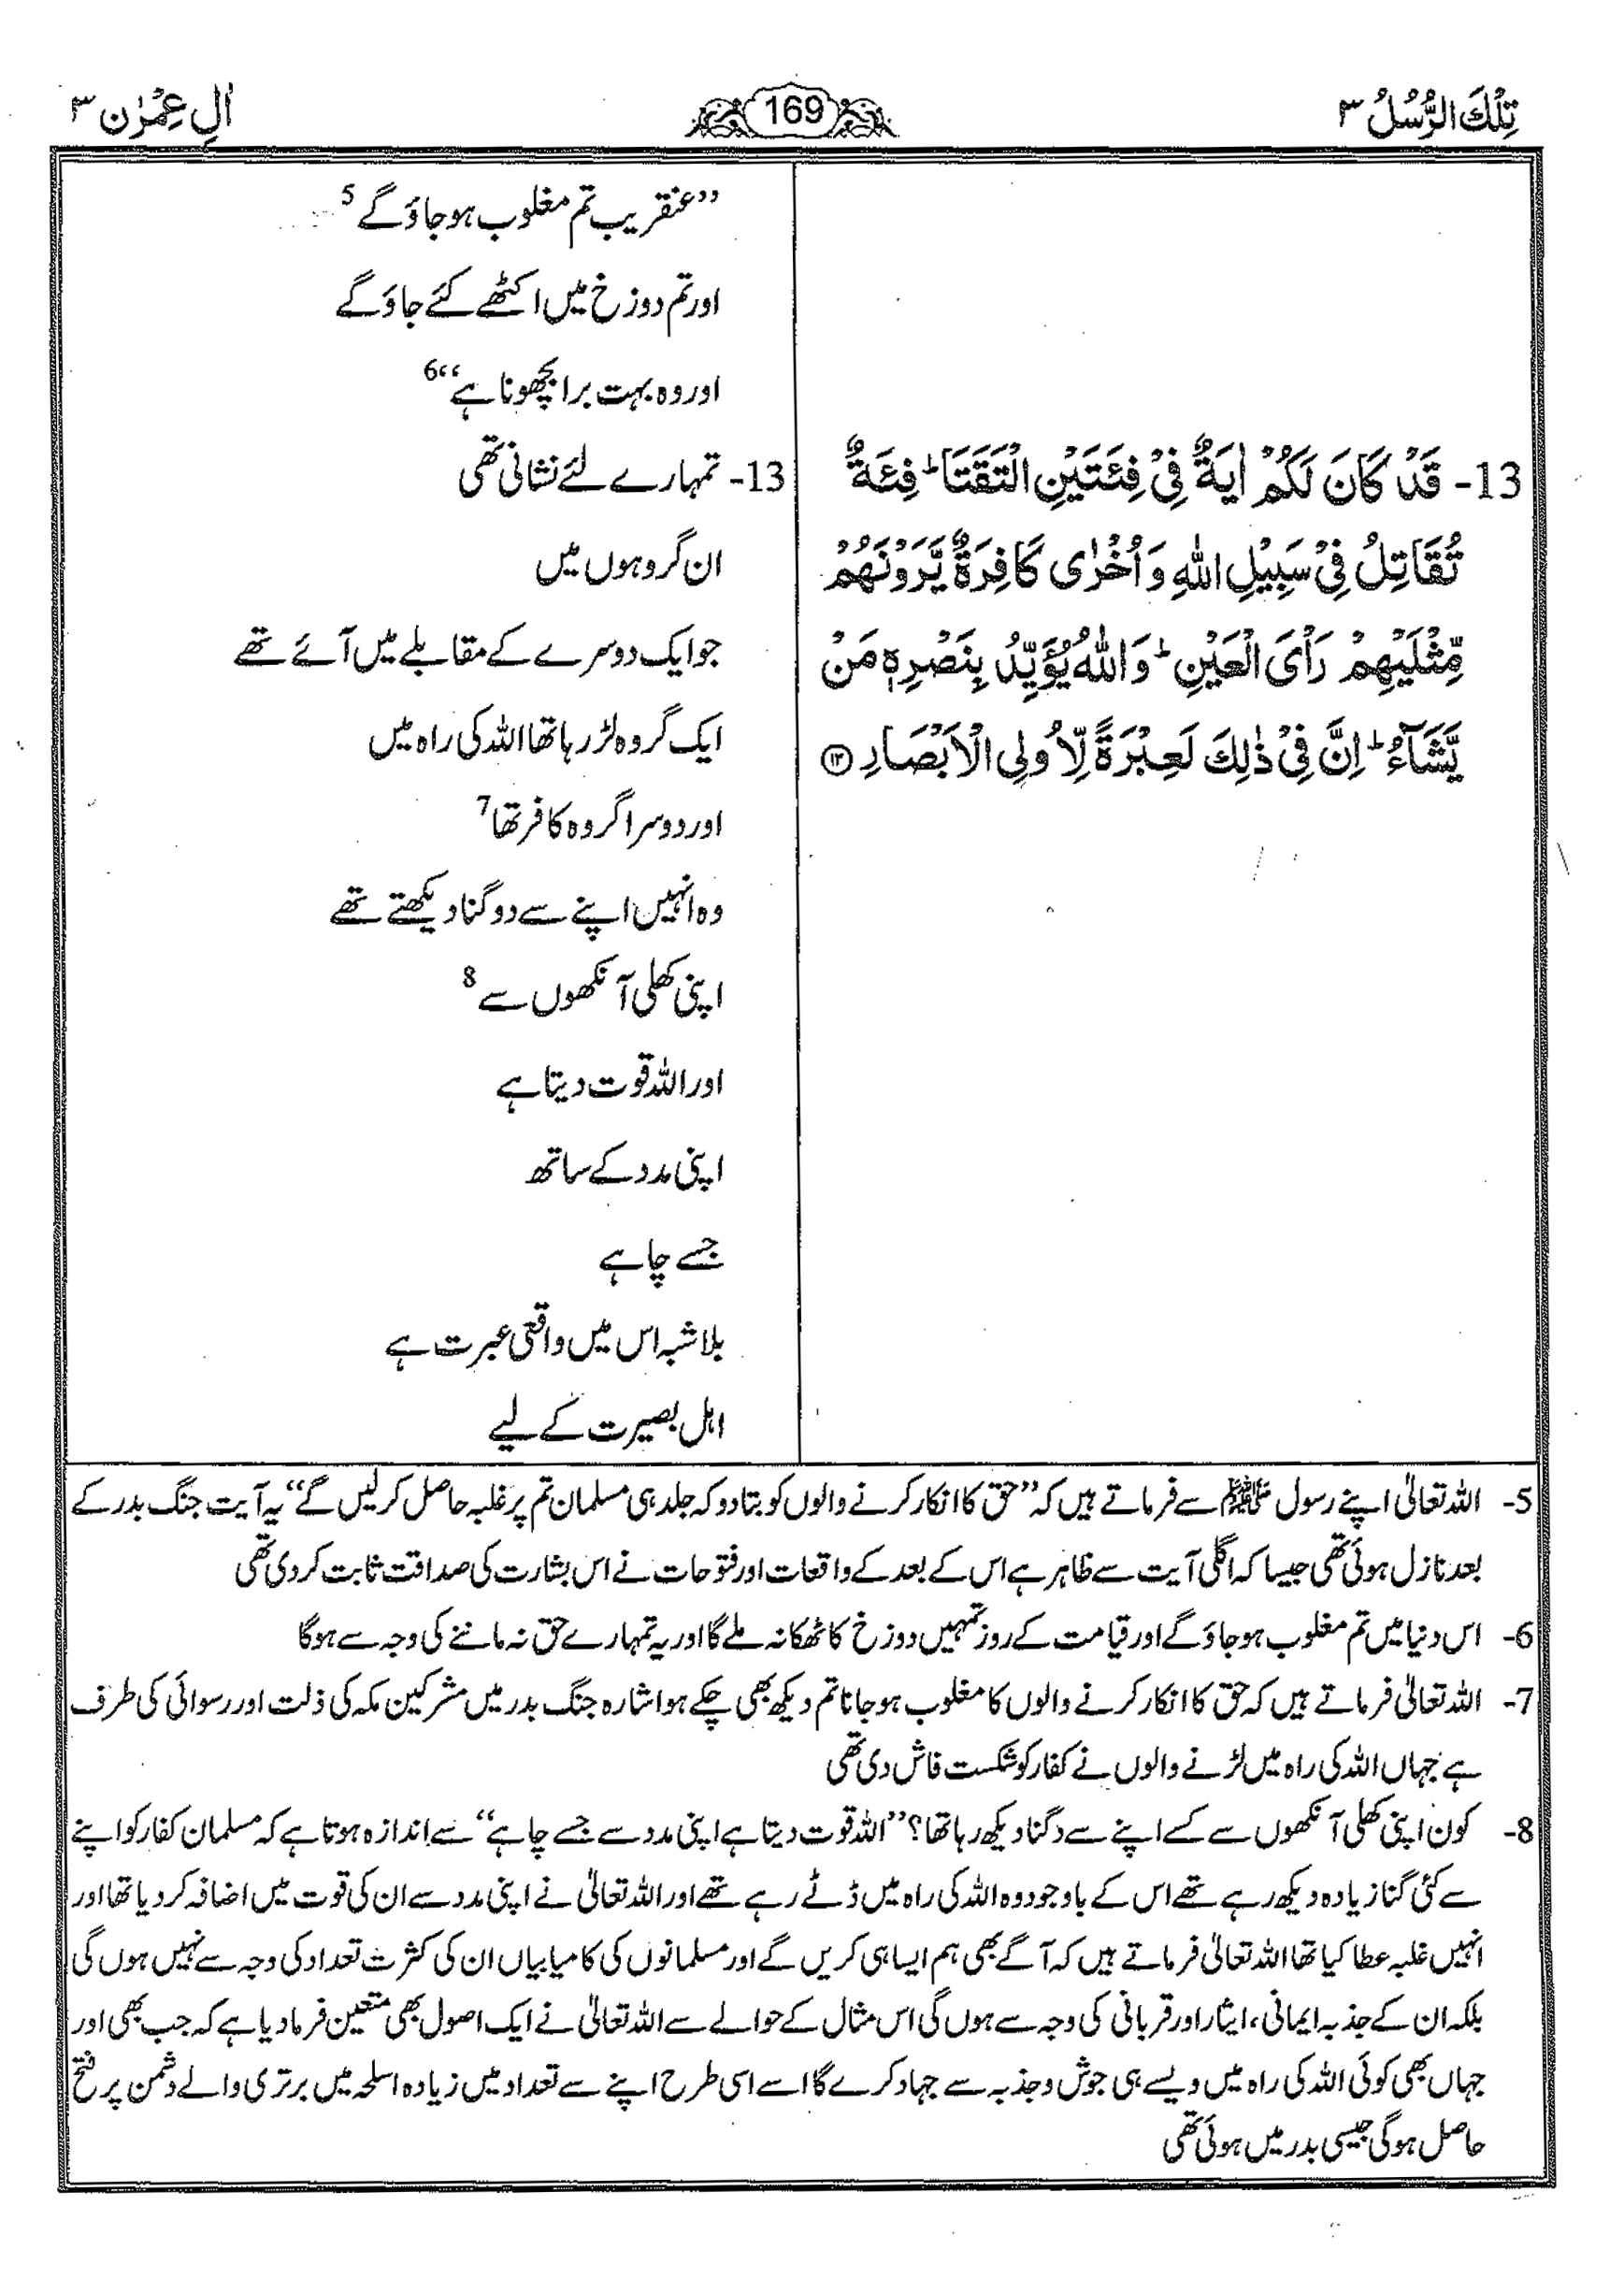 تِلْكَ الرُّسُلُ ۳
169
اٰلِ عِمْرٰن ۳
”عنقریب تم مغلوب ہو جاؤ گے 5
اور تم دوزخ میں اکٹھے کئے جاؤ گے
اور وہ بہت برا بچھونا ہے“ 6
13- قَدْ كَانَ لَكُمْ اٰيَةٌ فِيْ فِئَتَيْنِ الْتَقَتَا ؕ فِئَةٌ
تُقَاتِلُ فِيْ سَبِيْلِ اللّٰهِ وَ اُخْرٰى كَافِرَةٌ يَّرَوْنَهُمْ
مِّثْلَيْهِمْ رَاْيَ الْعَيْنِ ؕ وَ اللّٰهُ يُؤَيِّدُ بِنَصْرِهٖ مَنْ
يَّشَآءُ ؕ اِنَّ فِيْ ذٰلِكَ لَعِبْرَةً لِّاُولِي الْاَبْصَارِ ۱۳
13- تمہارے لئے نشانی تھی
ان گروہوں میں
جو ایک دوسرے کے مقابلے میں آئے تھے
ایک گروہ لڑ رہا تھا اللہ کی راہ میں
اور دوسرا گروہ کافر تھا 7
وہ انہیں اپنے سے دو گنا دیکھتے تھے
اپنی کھلی آنکھوں سے 8
اور اللہ قوت دیتا ہے
اپنی مدد کے ساتھ
جسے چاہے
بلاشبہ اس میں واقعی عبرت ہے
اہل بصیرت کے لیے
5- اللہ تعالیٰ اپنے رسول ﷺ سے فرماتے ہیں کہ ”حق کا انکار کرنے والوں کو بتا دو کہ جلد ہی مسلمان تم پر غلبہ حاصل کر لیں گے“ یہ آیت جنگ بدر کے
بعد نازل ہوئی تھی جیسا کہ اگلی آیت سے ظاہر ہے اس کے بعد کے واقعات اور فتوحات نے اس بشارت کی صداقت ثابت کر دی تھی
6- اس دنیا میں تم مغلوب ہو جاؤ گے اور قیامت کے روز تمہیں دوزخ کا ٹھکانہ ملے گا اور یہ تمہارے حق نہ ماننے کی وجہ سے ہوگا
7- اللہ تعالیٰ فرماتے ہیں کہ حق کا انکار کرنے والوں کا مغلوب ہو جانا تم دیکھ بھی چکے ہو اشارہ جنگ بدر میں مشرکین مکہ کی ذلت اور رسوائی کی طرف
ہے جہاں اللہ کی راہ میں لڑنے والوں نے کفار کو شکست فاش دی تھی
8- کون اپنی کھلی آنکھوں سے کسے اپنے سے دگنا دیکھ رہا تھا؟ ”اللہ قوت دیتا ہے اپنی مدد سے جسے چاہے“ سے اندازہ ہوتا ہے کہ مسلمان کفار کو اپنے
سے کئی گنا زیادہ دیکھ رہے تھے اس کے باوجود وہ اللہ کی راہ میں ڈٹے رہے تھے اور اللہ تعالیٰ نے اپنی مدد سے ان کی قوت میں اضافہ کر دیا تھا اور
انہیں غلبہ عطا کیا تھا اللہ تعالیٰ فرماتے ہیں کہ آگے بھی ہم ایسا ہی کریں گے اور مسلمانوں کی کامیابیاں ان کی کثرت تعداد کی وجہ سے نہیں ہوں گی
بلکہ ان کے جذبہ ایمانی، ایثار اور قربانی کی وجہ سے ہوں گی اس مثال کے حوالے سے اللہ تعالیٰ نے ایک اصول بھی متعین فرما دیا ہے کہ جب بھی اور
جہاں بھی کوئی اللہ کی راہ میں ویسے ہی جوش و جذبہ سے جہاد کرے گا اسے اسی طرح اپنے سے تعداد میں زیادہ اسلحہ میں برتری والے دشمن پر فتح
حاصل ہوگی جیسی بدر میں ہوئی تھی